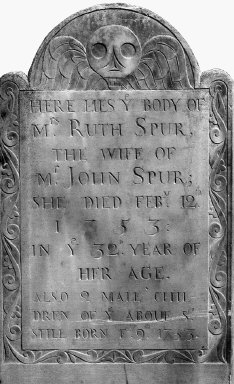 HERE LIES Yᵉ BODY OF
Mʳˢ RUTH SPUR,
THE WIFE OF
Mʳ JOHN SPUR;
SHE DIED FEBʸ 12ᵗʰ
1753:
IN Yᵉ 32ᵈ YEAR OF
HER AGE.
ALSO 2 MALE CHIL-
DREN OF Yᵉ ABOVE Sᵈ
STILL BORN 1753.